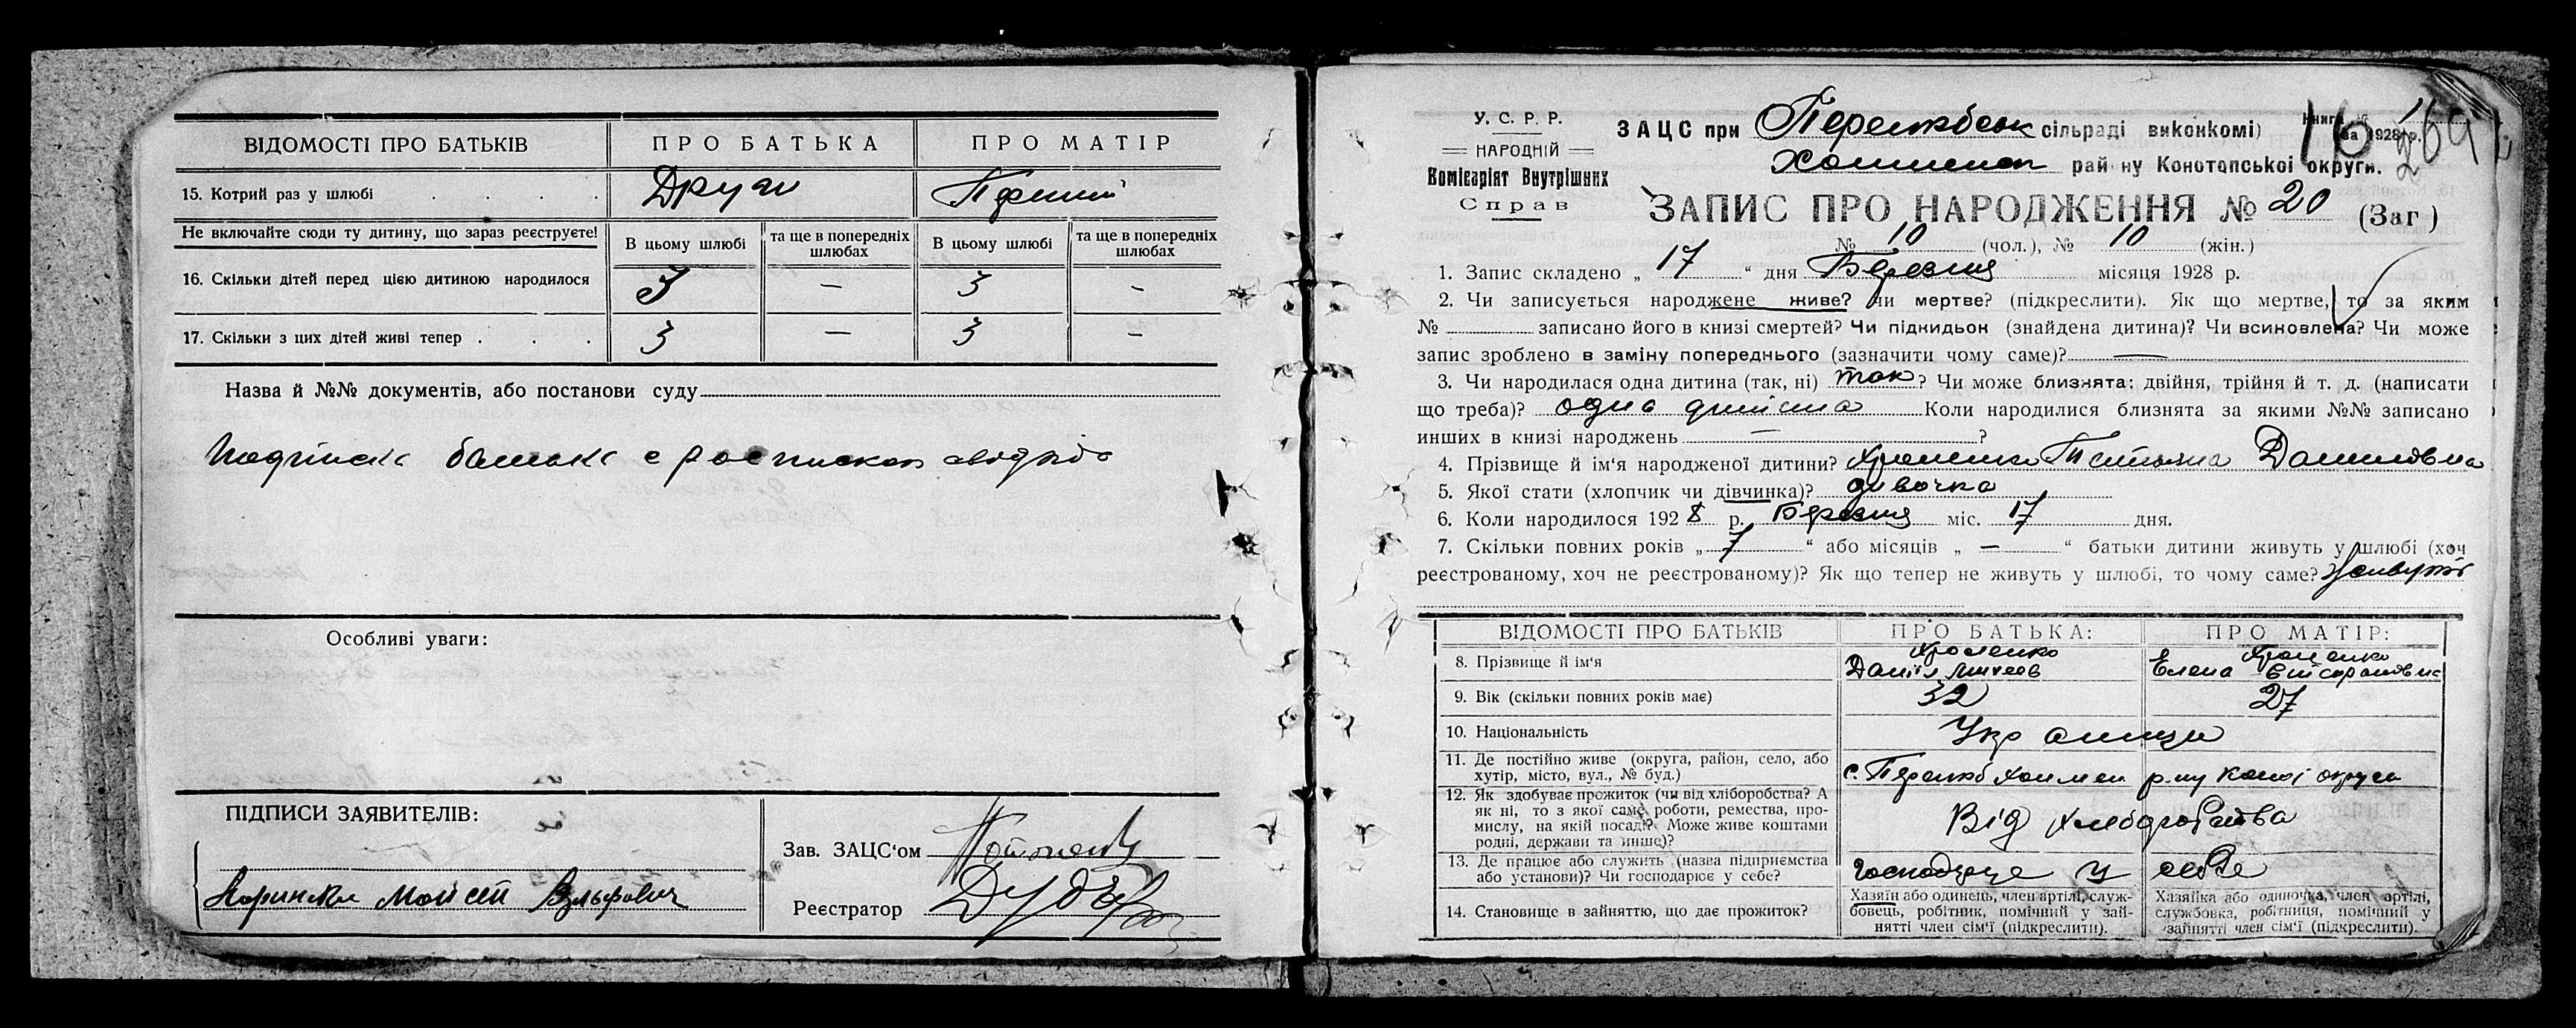 ВІДОМОСТІ ПРО БАТЬКІВ
ПРО БАТЬКА
ПРО МАТІР
15. Котрий раз у шлюбі . . . .
Други
Перший
Не включайте сюди ту дитину, що зараз реєструєте!
В цьому шлюбі
та ще в попередніх шлюбах
В цьому шлюбі
та ще в попередніх шлюбах
16. Скільки дітей перед цією дитиною народилося
3 — 3 -
17. Скільки з цих дітей живі тепер . . .
3 — 3 -
Назва й №№ документів, або постанови суду
батька с
Особливі уваги:
ПІДПИСИ ЗАЯВИТЕЛІВ:
Мойсей Вульфович
Зав. ЗАЦС'ом
Реєстратор
У. С. Р. Р.
НАРОДНІЙ
Комісаріят Внутрішних
Справ
ЗАЦС при сільраді виконкомі)
Книга № 1
за 1928 р.
16
269
району Конотопської округи.
ЗАПИС ПРО НАРОДЖЕННЯ № 20 (Заг)
№ 10 (чол.), № 10 (жін.)
1. Запис складено „ 17 “ дня Березня місяця 1928 р.
2. Чи записується народжене живе? чи мертве? (підкреслити). Як що мертве, то за яким
№ записано його в книзі смертей? Чи підкидьок (знайдена дитина)? Чи всиновлена? Чи може
запис зроблено в заміну попереднього (зазначити чому саме)? —
3. Чи народилася одна дитина (так, ні) так? Чи може близнята: двійня, трійня й т. д. (написати
що треба)? одна дитина Коли народилися близнята за якими №№ записано
инших в книзі народжень — ?
4. Прізвище й ім'я народженої дитини? Тетьяна Даниловна
5. Якої стати (хлопчик чи дівчинка)? дивочка
6. Коли народилося 1928 р. Березня міс. 17 дня.
7. Скільки повних років „ 7 “ або місяців „ — “ батьки дитини живуть у шлюбі (хоч
реєстрованому, хоч не реєстрованому)? Як що тепер не живуть у шлюбі, то чому саме? Живуть
ВІДОМОСТІ ПРО БАТЬКІВ
ПРО БАТЬКА:
ПРО МАТІР:
8. Прізвище й ім'я
Даніл
Елена
9. Вік (скільки повних років має)
32
27
10. Національність
Украинци
11. Де постійно живе (округа, район, село, або
хутір, місто, вул., № буд.)
с. р-ну округи
12. Як здобуває прожиток (чи від хліборобства? А
як ні, то з якої саме роботи, ремества, про-
мислу, на якій посаді? Може живе коштами
родні, держави та инше)?
Від хлеборобства
13. Де працює або служить (назва підприємства
або установи)? Чи господарює у себе?
господарює у себе
14. Становище в зайняттю, що дає прожиток?
Хазяїн або одинець, член артілі, служ-
бовець, робітник, помічний у зай-
нятті член сім'ї (підкреслити).
Хазяйка або одиночка, член артілі,
службовка, робітниця, помічний у
зайнятті член сім'ї (підкреслити).